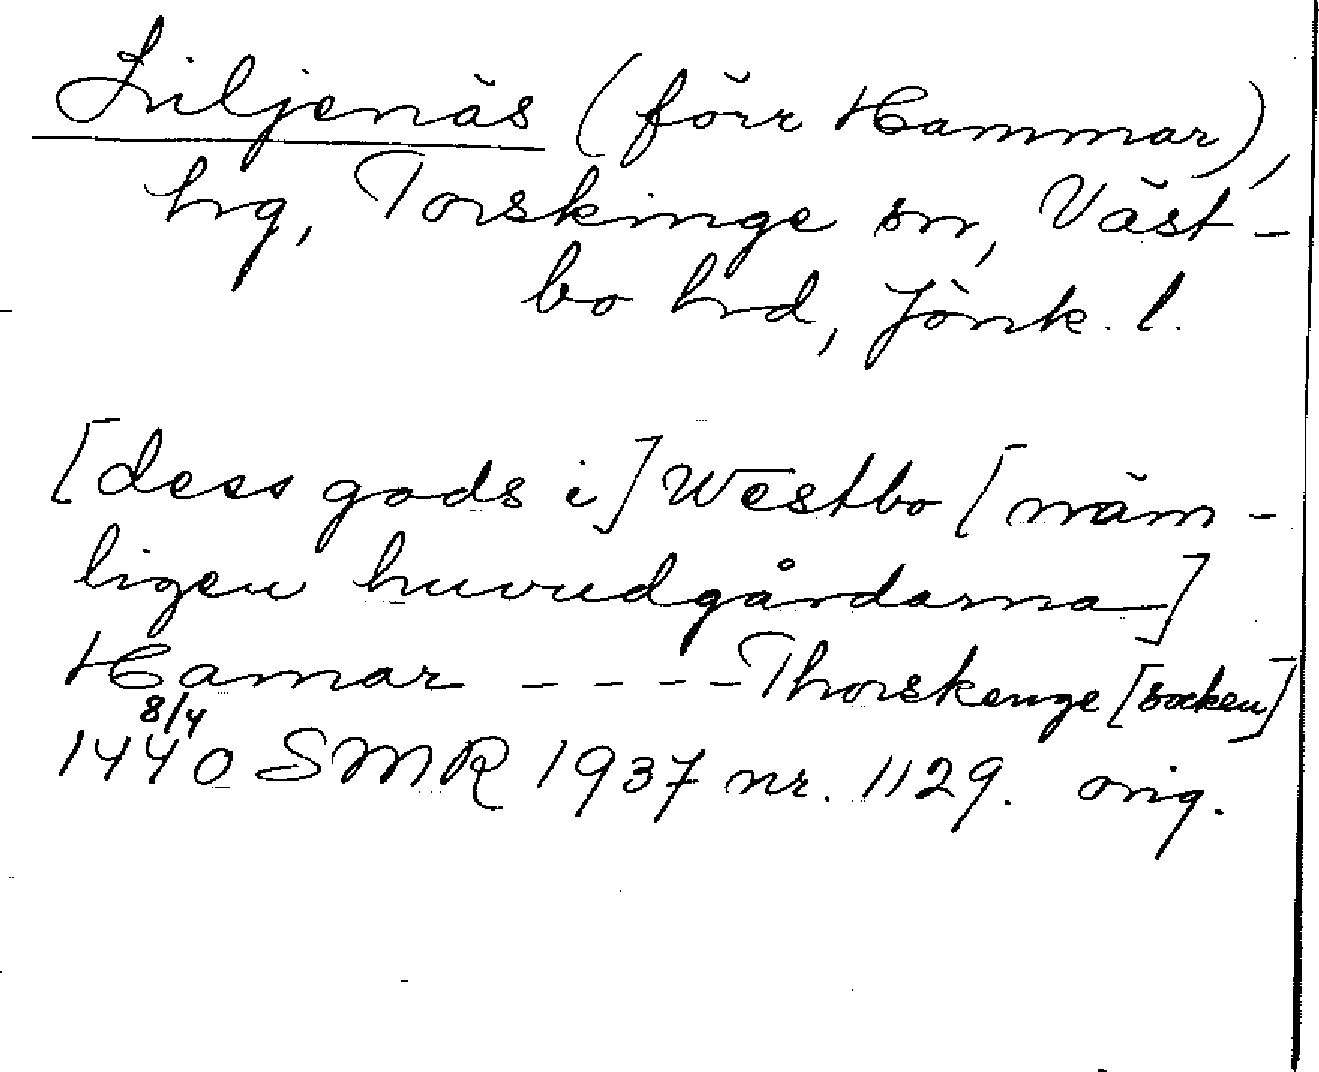 Liljenäs (förr Hammar),
hrg, Torskinge sn, Väst-
bo hrd, Jönk. l.
[dess gods i] Westbo [näm-
ligen huvudgårdarna]
Hamar - - - - - Thorskenge [socken]
8/4
1440 SMR 1937 nr. 1129. orig.